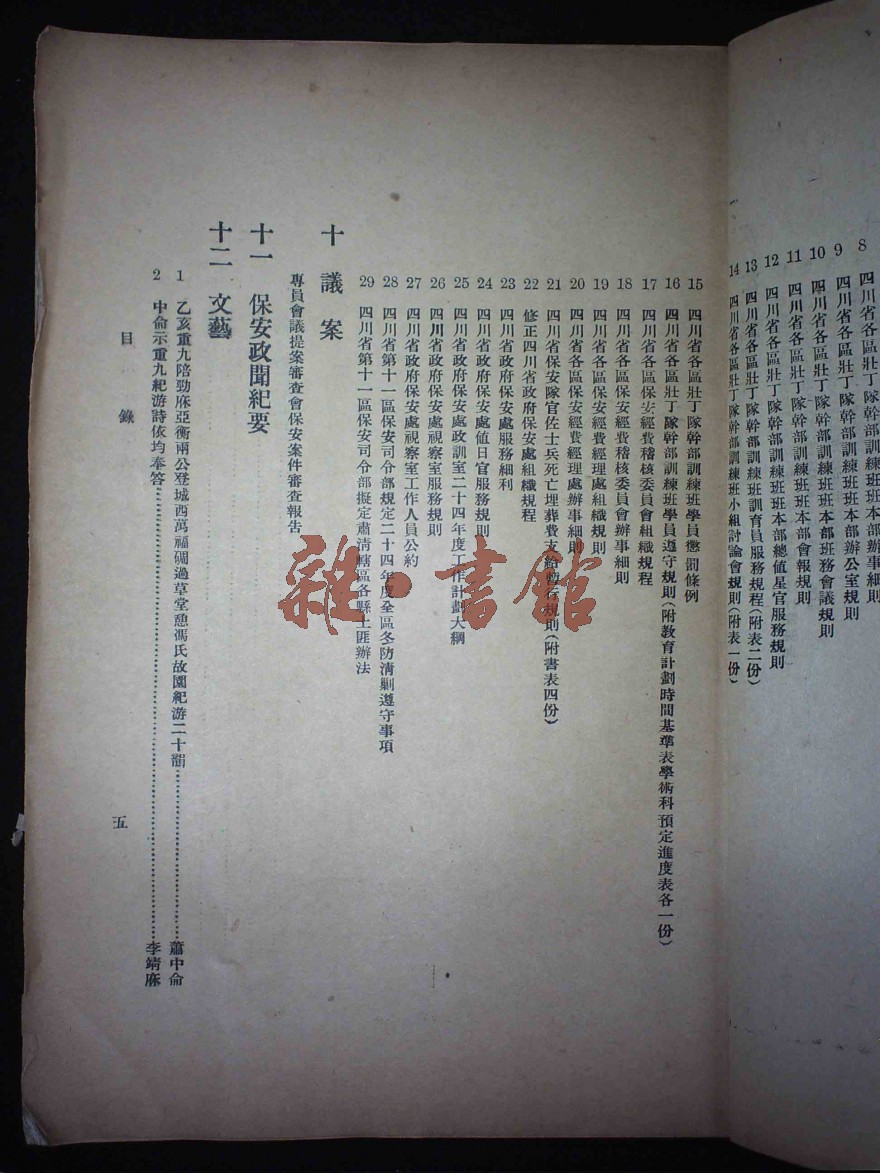 8
9 四川省各區壯丁隊幹部訓練班本部辦公室規則
10 四川省各區壯丁隊幹部訓練班本部班務會議規則
11 四川省各區壯丁隊幹部訓練班本部會報規則
12 四川省各區壯丁隊幹部訓練班本部總值星官服務規則
13 四川省各區壯丁隊幹部訓練班訓育員服務規程(附表二份)
14 四川省各區壯丁隊幹部訓練班小組討論會規則(附表一份)
15 四川省各區壯丁隊幹部訓練班學員懲罰條例
16 四川省各區壯丁隊幹部訓練班學員遵守規則(附教育計劃時間基準表學術科預定進度表各一份)
17 四川省各區保安經費稽核委員會組織規程
18 四川省各區保安經費稽核委員會辦事細則
19 四川省各區保安經費經理處組織規則
20 四川省各區保安經費經理處辦事細則
21 四川省各區保安隊官佐士兵死亡埋葬費支給暫行規則(附書表四份)
22 修正四川省政府保安處組織規程
23 四川省政府保安處服務細利
24 四川省政府保安處值日官服務規則
25 四川省政府保安處政訓室二十四年度工作計劃大綱
26 四川省政府保安處視察室服務規則
27 四川省政府保安處視察室工作人員公約
28 四川省第十一區保安司令部規定二十四年度全區冬防清剿遵守事項
29 四川省第十一區保安司令部擬定肅清轄區各縣土匪辦法
十 議案
專員會議提案審查會保安案件審查報告
十一 保安政聞紀要
十二 文藝
1 乙亥重九陪勁庥亞衡兩公登城西萬福硐過草堂憩馮氏故園紀游二十韻……蕭中侖
2 中侖示重九紀游詩依均奉答……李靖庥
目 錄
五
雜·書館